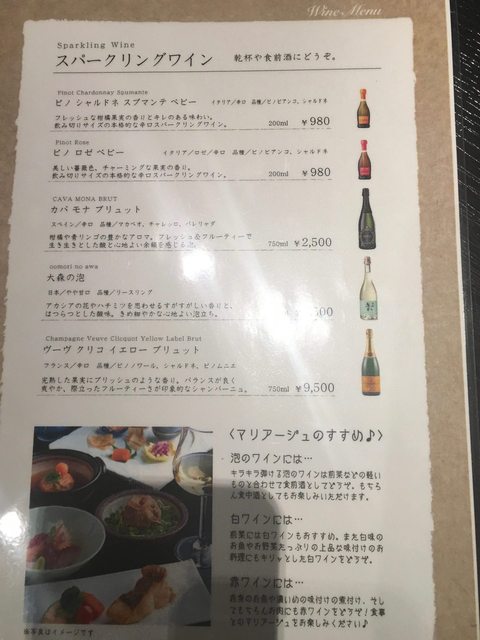 Wine Menu
Sparkling Wine
スパークリングワイン 乾杯や食前酒にどうぞ。
Pinot Chardonnay Spumante
ピノ シャルドネ スプマンテ ベビー イタリア/辛口 品種/ピノビアンコ、シャルドネ
フレッシュな柑橘果実の香りとキレのある味わい。
飲み切りサイズの本格的な辛口スパークリングワイン。 200ml ¥980
Pinot Rose
ピノ ロゼ ベビー イタリア/ロゼ/辛口 品種/ピノビアンコ、シャルドネ
美しい薔薇色、チャーミングな果実の香り。
飲み切りサイズの本格的な辛口スパークリングワイン。 200ml ¥980
CAVA MONA BRUT
カバ モナ ブリュット
スペイン/辛口 品種/マカベオ、チャレッロ、パレリャダ
柑橘や青リンゴの豊かなアロマ。フレッシュ&フルーティーで
生き生きとした酸と心地よい余韻を感じる泡。 750ml ¥2,500
oomori no awa
大森の泡
日本/やや甘口 品種/リースリング
アカシアの花やハチミツを思わせるすがすがしい香りと、
はつらつとした酸味。きめ細やかな心地よい泡立ち。
Champagne Veuve Clicquot Yellow Label Brut
ヴーヴ クリコ イエロー ブリュット
フランス/辛口 品種/ピノノワール、シャルドネ、ピノムニエ
完熟した果実にブリッシュのような香り。バランスが良く
爽やか、際立ったフルーティーさが印象的なシャンパーニュ。 750ml ¥9,500
〈マリアージュのすすめ♪〉
泡のワインには…
キラキラ弾ける泡のワインは前菜などの軽い
ものと合わせて食前酒としてどうぞ。もちろ
ん食中酒としてもお楽しみいただけます。
白ワインには…
前菜には白ワインもおすすめ。また白味の
お魚やお野菜たっぷりの上品な味付けのお
料理にもキリッとした白ワインをどうぞ。
赤ワインには…
お魚や濃いめの味付けの煮付け、そし
てもちろんお肉にも赤ワインをどうぞ!食事
とのマリアージュをお楽しみください♪
※写真はイメージです